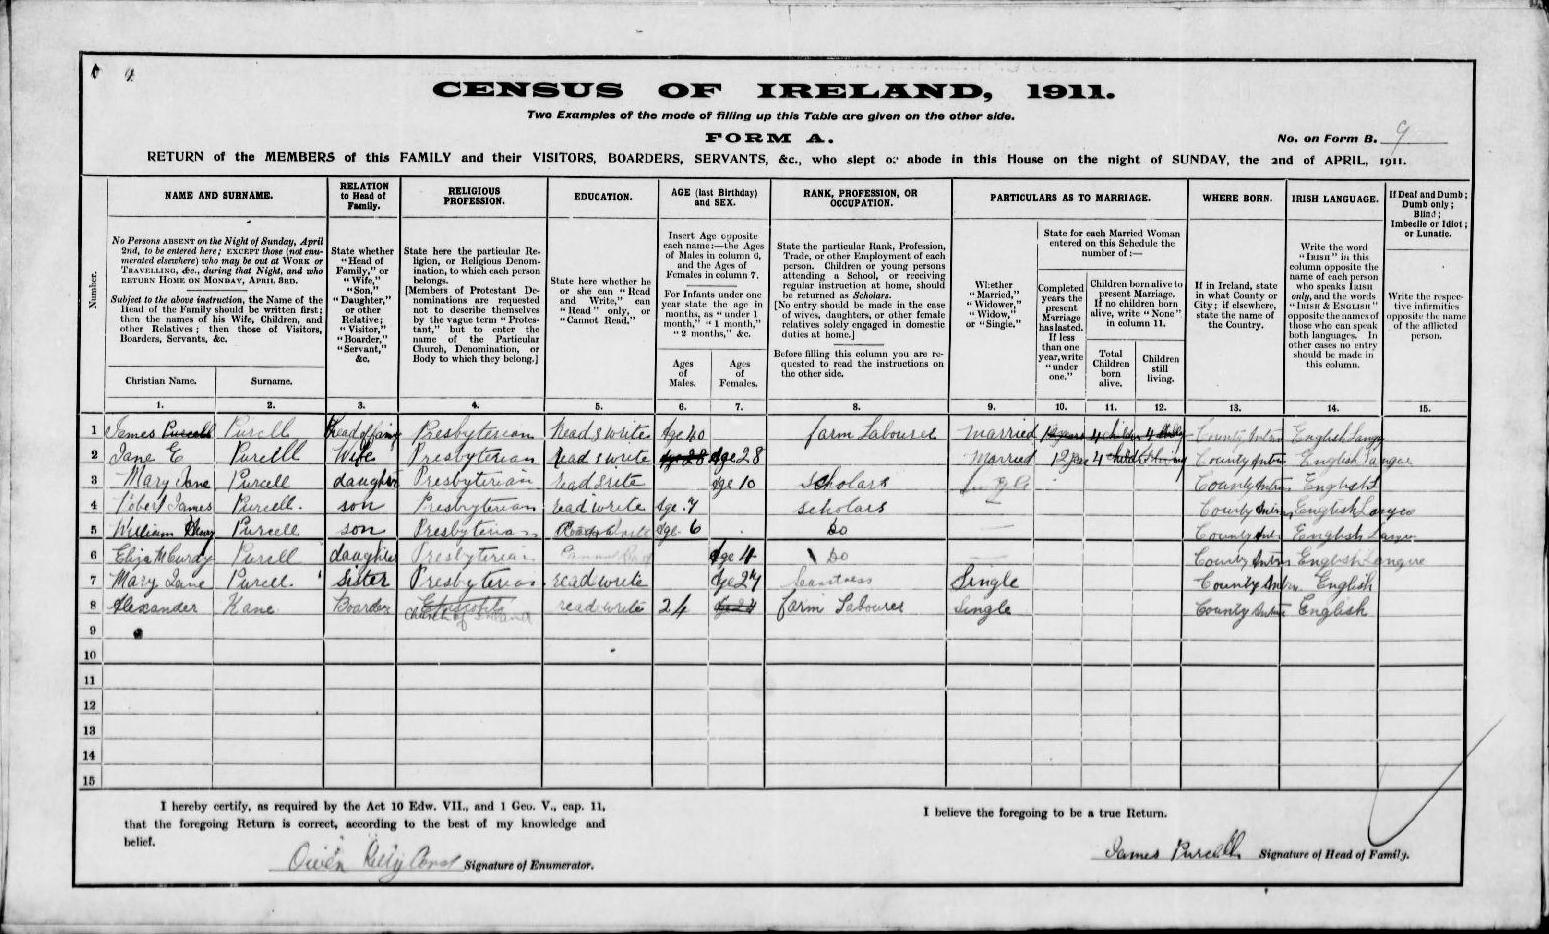 CENSUS OF IRELAND, 1911.
Two Examples of the mode of filling up this Table are given on the other side.
FORM A.
No. on Form B. 9
RETURN of the MEMBERS of this FAMILY and their VISITORS, BOARDERS, SERVANTS, &c., who slept or abode in this House on the night of SUNDAY, the 2nd of APRIL, 1911.
Number.
NAME AND SURNAME.
No Persons ABSENT on the Night of Sunday, April
2nd, to be entered here; EXCEPT those (not enu-
merated elsewhere) who may be out at WORK or
TRAVELLING, &c., during that Night, and who
RETURN HOME ON MONDAY, APRIL 3RD.
Subject to the above instruction, the Name of the
Head of the Family should be written first;
then the names of his Wife, Children, and
other Relatives; then those of Visitors,
Boarders, Servants, &c.
Christian Name.
Surname.
RELATION
to Head of
Family.
State whether
"Head of
Family," or
"Wife,"
"Son,"
"Daughter,"
or other
Relative;
"Visitor,"
"Boarder,"
"Servant,"
&c.
RELIGIOUS
PROFESSION.
State here the particular Re-
ligion, or Religious Denom-
ination, to which each person
belongs.
[Members of Protestant De-
nominations are requested
not to describe themselves
by the vague term "Protes-
tant," but to enter the
name of the Particular
Church, Denomination, or
Body to which they belong.]
EDUCATION.
State here whether he
or she can "Read
and Write," can
"Read" only, or
"Cannot Read."
AGE (last Birthday)
and SEX.
Insert Age opposite
each name:—the Ages
of Males in column 6,
and the Ages of
Females in column 7.
For Infants under one
year state the age in
months, as "under 1
month," "1 month,"
"2 months," &c.
Ages
of
Males.
Ages
of
Females.
RANK, PROFESSION, OR
OCCUPATION.
State the particular Rank, Profession,
Trade, or other Employment of each
person. Children or young persons
attending a School, or receiving
regular instruction at home, should
be returned as Scholars.
[No entry should be made in the case
of wives, daughters, or other female
relatives solely engaged in domestic
duties at home.]
Before filling this column you are re-
quested to read the instructions on
the other side.
PARTICULARS AS TO MARRIAGE.
Whether
"Married,"
"Widower,"
"Widow,"
or "Single."
State for each Married Woman
entered on this Schedule the
number of:—
Completed
years the
present
Marriage
has lasted.
If less
than one
year, write
"under
one."
Children born alive to
present Marriage.
If no children born
alive, write "None"
in column 11.
Total
Children
born
alive.
Children
still
living.
WHERE BORN.
If in Ireland, state
in what County or
City; if elsewhere,
state the name of
the Country.
IRISH LANGUAGE.
Write the word
"IRISH" in this
column opposite the
name of each person
who speaks IRISH
only, and the words
"IRISH & ENGLISH"
opposite the names of
those who can speak
both languages. In
other cases no entry
should be made in
this column.
If Deaf and Dumb;
Dumb only;
Blind;
Imbecile or Idiot;
or Lunatic.
Write the respec-
tive infirmities
opposite the name
of the afflicted
person.
1. 2. 3. 4. 5. 6. 7. 8. 9. 10. 11. 12. 13. 14. 15.
1 James Purcell Purcell Head of family Presbyterian Read & write Age 40 farm Labourer Married 12 years 4 children 4 County Antrim English
2 Jane E Purcell Wife Presbyterian read & write Age 28 Age 28 Married 12 4 County Antrim English Langue
3 Mary Jane Purcell daughter Presbyterian Age 10 scholars County Antrim English
4 Robert James Purcell. son Presbyterian read write Age. 7 scholars County Antrim English
5 William Henry Purcell son Presbyterian Age. 6 Do County English
6 Eliza McCurdy Purcell daughter Presbyterian Age 4 Do County Antrim English Langue
7 Mary Jane Purcell sister Presbyterian read write Age 27 Seamstress Single County Antrim English
8 Alexander Kane Boarder Church of Ireland read write 24 Age 24 farm Labourer Single County Antrim English
9
10
11
12
13
14
15
I hereby certify, as required by the Act 10 Edw. VII., and 1 Geo. V., cap. 11,
that the foregoing Return is correct, according to the best of my knowledge and
belief.
Owen Const Signature of Enumerator.
I believe the foregoing to be a true Return.
James Purcell Signature of Head of Family.